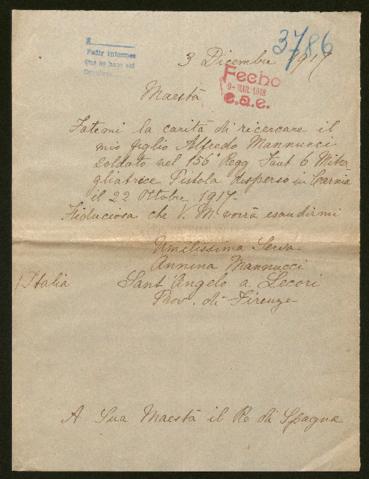 3786
Pedir informes
3 Dicembre 1917
Fecho
9-MAR. 1918
e.a.e.
Maestà
Fatemi la carità di ricercare il
mio figlio Alfredo Mannucci
Soldato nel 156° Regg Fant 6 Mitra
gliatrice Pistola disperso in Carnia
il 22 Ottobre 1917.
Fiduciosa che V. M vorrà esaudirmi
Umilissima Serva
Annina Mannucci
(Italia Sant'Angelo a Lecori
Prov. di Firenze
A Sua Maestà il Re di Spagna